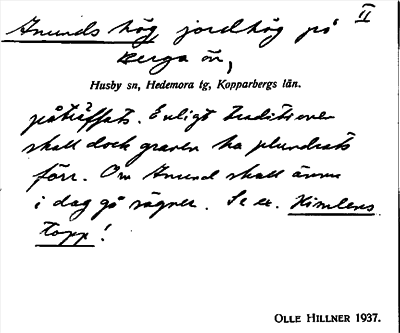 Anunds hög, jordhög på II
Berga ön,
Husby sn, Hedemora tg, Kopparbergs län.
påträffats. Enligt traditionen
skall dock graven ha plundrats
förr. Om Anund skall ännu
i dag gå sägner. Se ex. Kimlens
topp!
OLLE HILLNER 1937.